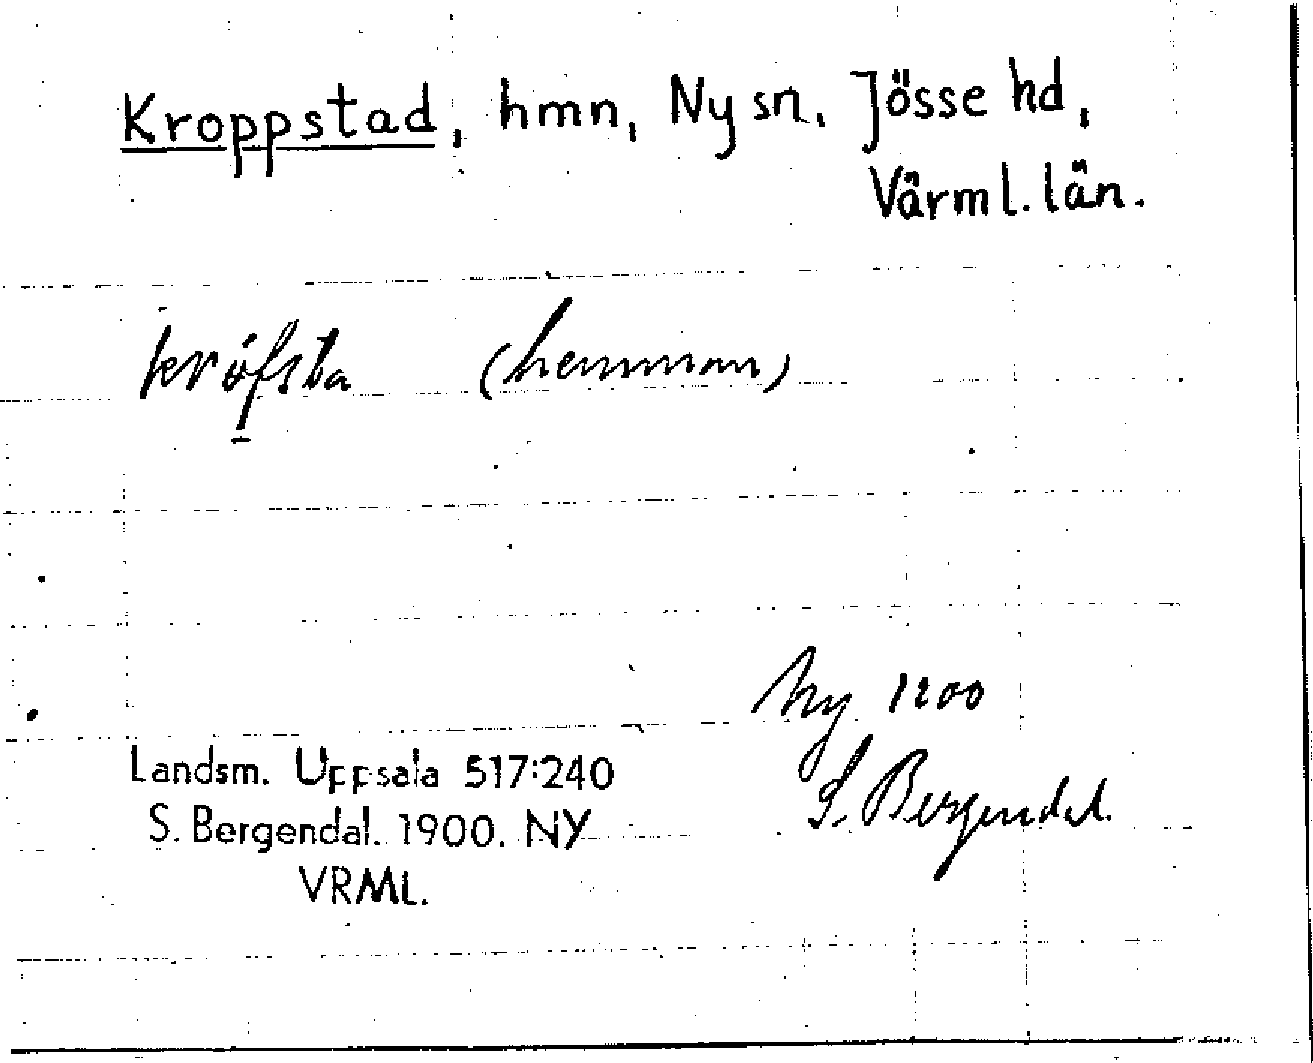 Kroppstad, hmn, Ny sn. Jösse hd,
Värml. län.
kröfsta (hemman)
Ny 1900
S. Bergendal.
Landsm. Uppsala 517:240
S. Bergendal. 1900. NY
VRML.